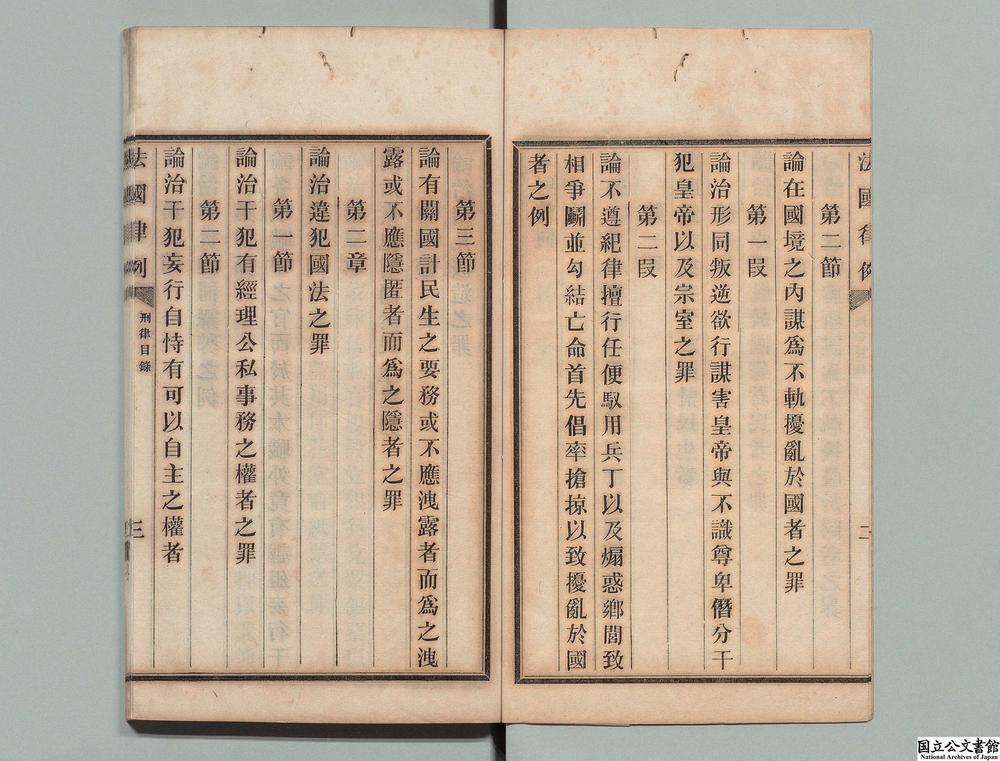 法國律例
二
第二節
論在國境之內謀爲不軌擾亂於國者之罪
第一段
論治形同叛逆欲行謀害皇帝與不識尊卑僭分干
犯皇帝以及宗室之罪
第二段
論不遵紀律擅行任便馭用兵丁以及煽惑鄉閭致
相爭鬬並勾結亡命首先倡率搶掠以致擾亂於國
者之例
第三節
論有關國計民生之要務或不應洩露者而爲之洩
露或不應隱匿者而爲之隱者之罪
第二章
論治違犯國法之罪
第一節
論治干犯有經理公私事務之權者之罪
第二節
論治干犯妄行自恃有可以自主之權者
法國律例
刑律目錄
三
国立公文書館
National Archives of Japan